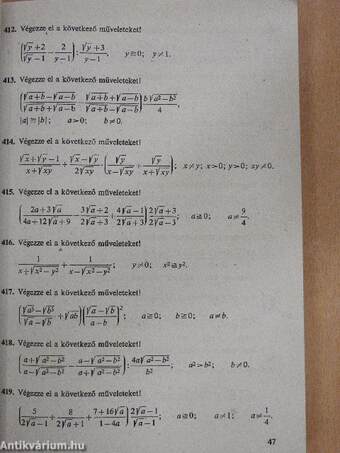 412. Végezze el a következő műveleteket!
(√y+2/√y−1 − 2/y−1) : √y+3/y−1, y≧0; y≠1.
413. Végezze el a következő műveleteket!
(√a+b−√a−b/√a+b+√a−b − √a+b+√a−b/√a+b−√a−b) b√a²−b²/4,
|a|≧|b|; a>0; b≠0.
414. Végezze el a következő műveleteket!
√x+√y−1/x+√xy + √x−√y/2√xy (√y/x−√xy + √y/x+√xy); x≠y; x>0; y>0; xy≠0.
415. Végezze el a következő műveleteket!
(2a+3√a/4a+12√a+9 − 3√a+2/2√a+3 + 4√a−1/2√a+3) 2√a+3/2√a−3; a≧0; a≠9/4
416. Végezze el a következő műveleteket!
1/x+√x²−y² + 1/x−√x²−y²; y≠0; x²≧y².
417. Végezze el a következő műveleteket!
(√a³−√b³/√a−√b + √ab)(√a−√b/a−b)²; a≧0; b≧0; a≠b.
418. Végezze el a következő műveleteket!
(a+√a²−b²/a−√a²−b² − a−√a²−b²/a+√a²−b²) : 4a√a²−b²/b²; a²>b²; b≠0.
419. Végezze el a következő műveleteket!
(5/2√a−1 + 8/2√a+1 + 7+16√a/1−4a) 2√a−1/√a−1; a≧0; a≠1; a≠1/4
47
Antikvárium.hu